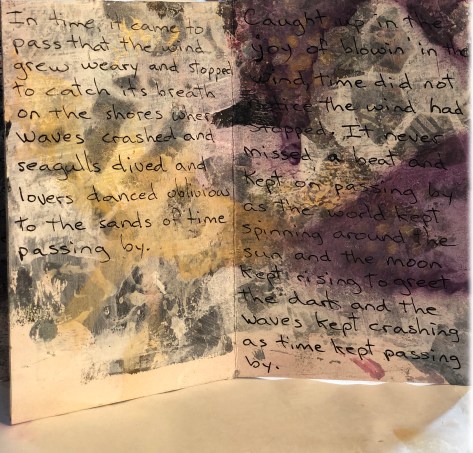 In time it came to
pass that the wind
grew weary and stopped
to catch its breath
on the shores where
waves crashed and
seagulls dived and
lovers danced oblivious
to the sands of time
passing by.
Caught up in the
joy of blowin' in the
wind, time did not
notice the wind had
stopped. It never
missed a beat and
kept on passing by
as the world kept
spinning around the
sun and the moon
kept rising to greet
the dark and the
waves kept crashing
as time kept passing
by.